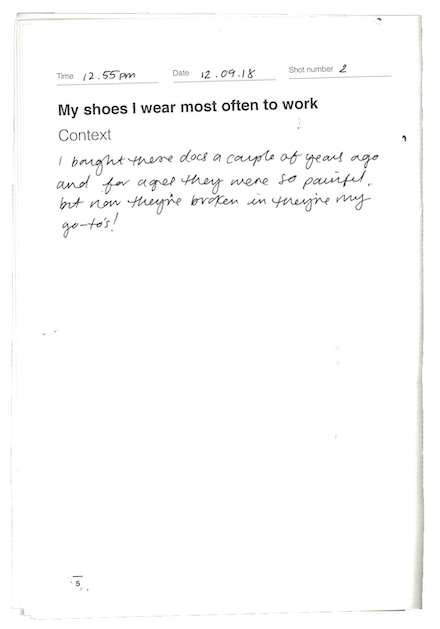 Time 12.55pm Date 12.09.18 Shot number 2
My shoes I wear most often to work
Context
I bought these docs a couple of years ago
and for ages they were so painful.
but now they're broken in they're my
go-to's!
5